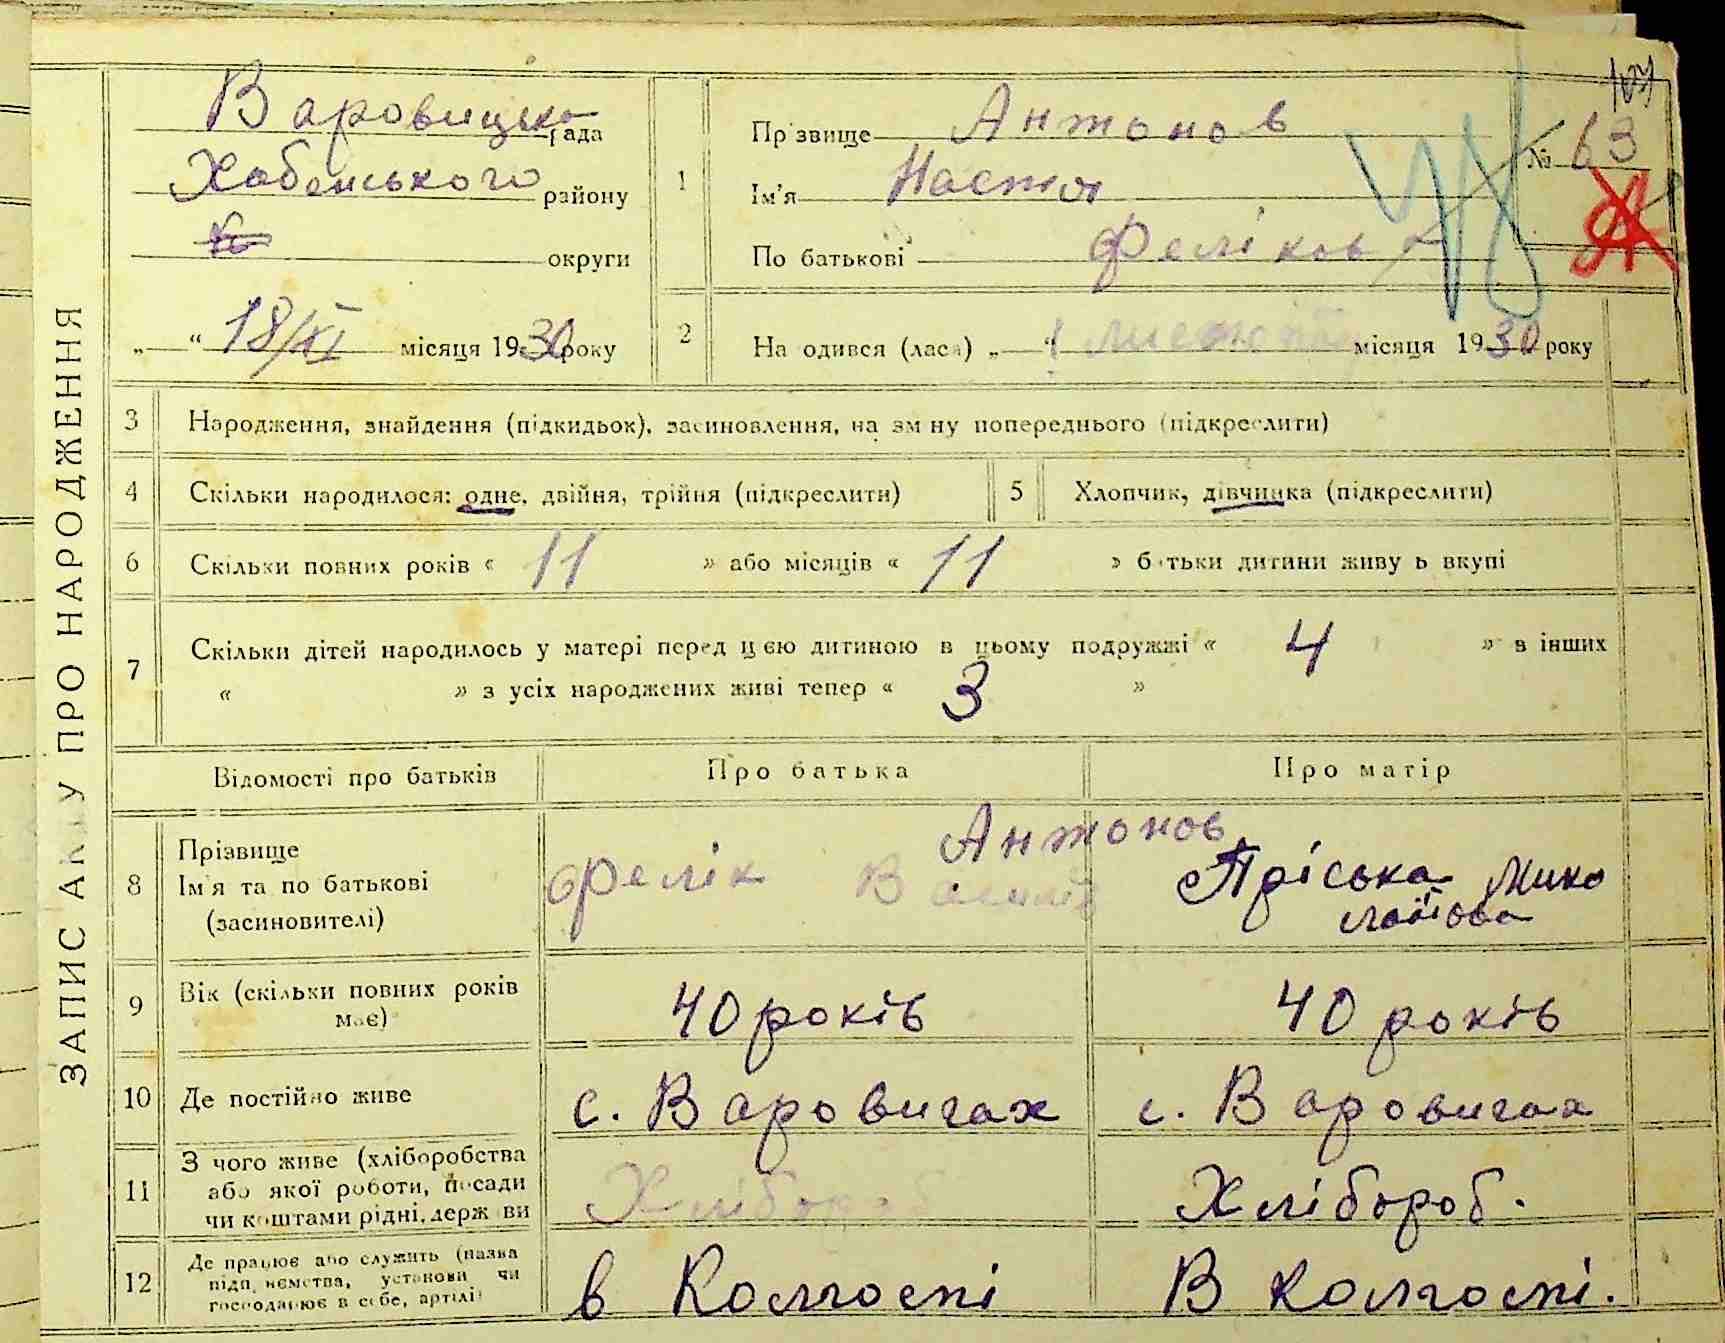 ЗАПИС АКТУ ПРО НАРОДЖЕННЯ
Варовицька рада
Хабенського району
округи
„ “ 18/XI місяця 1930 року
1
Прізвище Антонов
Ім'я Настя
По батькові Феліков
№ 63
2
На одився (лася) „ 1 “ листопа місяця 1930 року
3 Народження, знайдення (підкидьок), засиновлення, на зм ну попереднього (підкреслити)
4 Скільки народилося: одне, двійня, трійня (підкреслити) 5 Хлопчик, дівчинка (підкреслити)
6 Скільки повних років « 11 » або місяців « 11 » б тьки дитини живу ь вкупі
7 Скільки дітей народилось у матері перед цією дитиною в цьому подружжі « 4 » в інших
« » з усіх народжених живі тепер « 3 »
Відомості про батьків Про батька Про матір
8 Прізвище
Ім'я та по батькові
(засиновителі)
Антонов
Фелік Василів
Пріська Мико
лаїова
9 Вік (скільки повних років
має)
40 років 40 років
10 Де постійно живе с. Варовичах с. Варовичах
11 З чого живе (хліборобства
або якої роботи, посади
чи коштами рідні, держ ви
Хлібороб Хлібороб.
12 Де працює або служить (назва
підп иємства, установи чи
господарює в себе, артілі
в Колгоспі В Колгоспі.